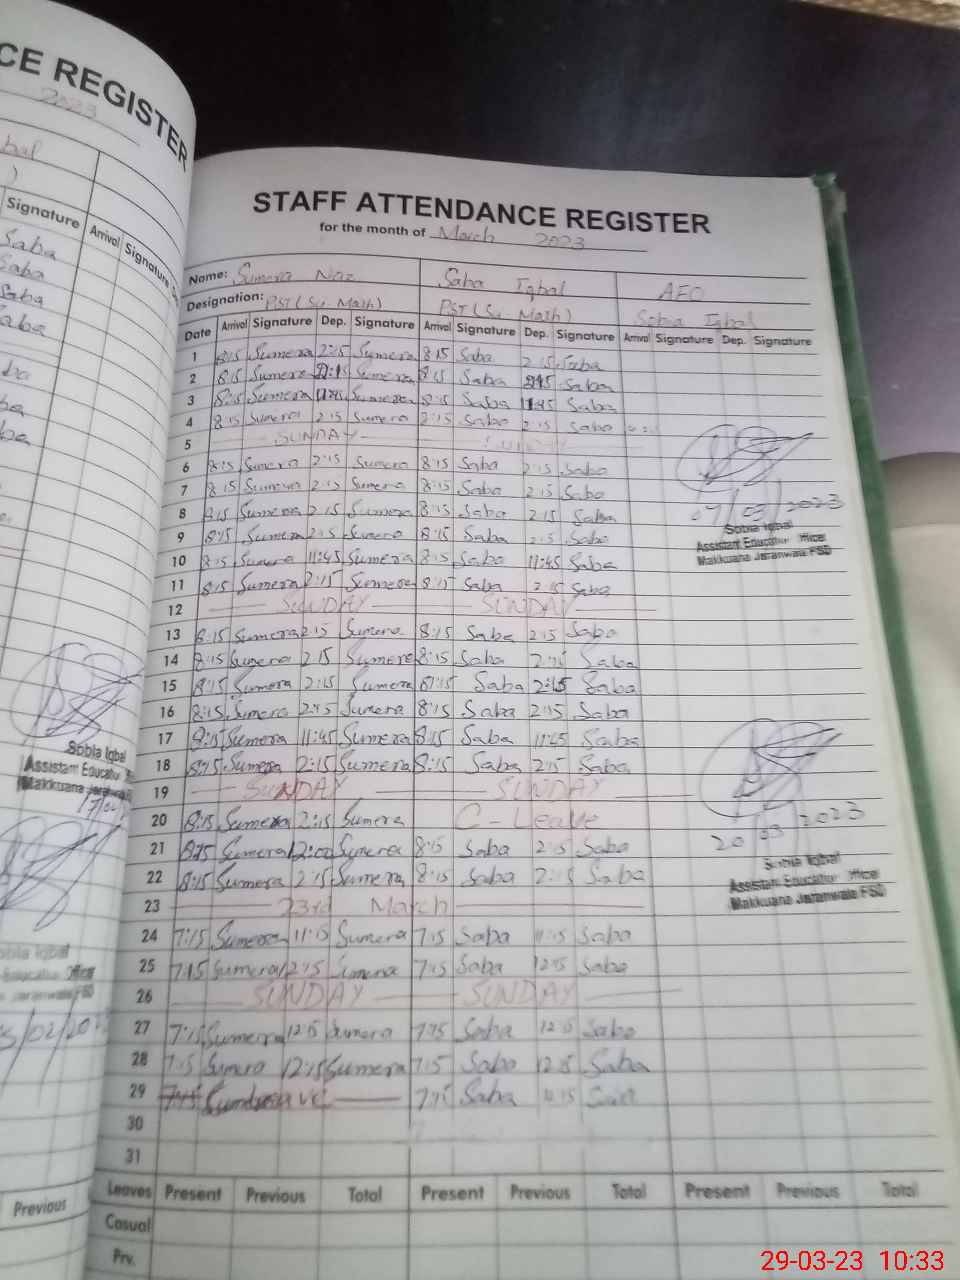 CE REGISTER
2023
Signature Arrival Signature
Saba
Saba
Saba
Saba
STAFF ATTENDANCE REGISTER
for the month of March 2023
Name: Sumera Naz Saba Iqbal AEO
Designation: PST (Su. Math) PST (Su. Math) Sobia Iqbal
Date Arrival Signature Dep. Signature Arrival Signature Dep. Signature Arrival Signature Dep. Signature
1 8:15 Sumera 2:15 Sumera 8:15 Saba 2:15 Saba
2 8:15 Sumera Sumera 8:15 Saba Saba
3 8:15 Sumera 11:45 Sumera 8:15 Saba 11:45 Saba
4 8:15 Sumera 2:15 Sumera 8:15 Saba 2:15 Saba
5 SUNDAY SUNDAY
6 8:15 Sumera 2:15 Sumera 8:15 Saba 2:15 Saba
7 8:15 Sumera 2:15 Sumera 8:15 Saba 2:15 Saba
8 8:15 Sumera 2:15 Sumera 8:15 Saba 2:15 Saba
07/03/2023
Sobia Iqbal
9 8:15 Sumera 2:15 Sumera 8:15 Saba 2:15 Saba
Assistant Education Officer
Makkuana Jaranwala FSD
10 8:15 Sumera 11:45 Sumera 8:15 Saba 11:45 Saba
11 8:15 Sumera 2:15 Sumera 8:15 Saba 2:15 Saba
12 SUNDAY SUNDAY
13 8:15 Sumera 2:15 Sumera 8:15 Saba 2:15 Saba
14 8:15 Sumera 2:15 Sumera 8:15 Saba 2:15 Saba
15 8:15 Sumera 2:15 Sumera 8:15 Saba 2:15 Saba
16 8:15 Sumera 2:15 Sumera 8:15 Saba 2:15 Saba
17 8:15 Sumera 11:45 Sumera 8:15 Saba 11:45 Saba
18 8:15 Sumera 2:15 Sumera 8:15 Saba 2:15 Saba
19 SUNDAY SUNDAY
20 8:15 Sumera 2:15 Sumera C-Leave
20/03/2023
21 8:15 Sumera 12:00 Sumera 8:15 Saba 2:15 Saba
Sobia Iqbal
22 8:15 Sumera 2:15 Sumera 8:15 Saba 2:15 Saba
Assistant Education Officer
Makkuana Jaranwala FSD
23 23rd March
24 7:15 Sumera 11:15 Sumera 7:15 Saba 11:15 Saba
25 7:15 Sumera 12:15 Sumera 7:15 Saba 12:15 Saba
26 SUNDAY SUNDAY
27 7:15 Sumera 12:15 Sumera 7:15 Saba 12:15 Saba
28 7:15 Sumera 12:15 Sumera 7:15 Saba 12:15 Saba
29 Saba
30
31
Leaves Present Previous Total Present Previous Total Present Previous Total
Casual
Prv.
Sobia Iqbal
Assistant Education
Makkuana Jaranwala
Sobia Iqbal
Education Officer
Jaranwala FSD
Previous
29-03-23 10:33